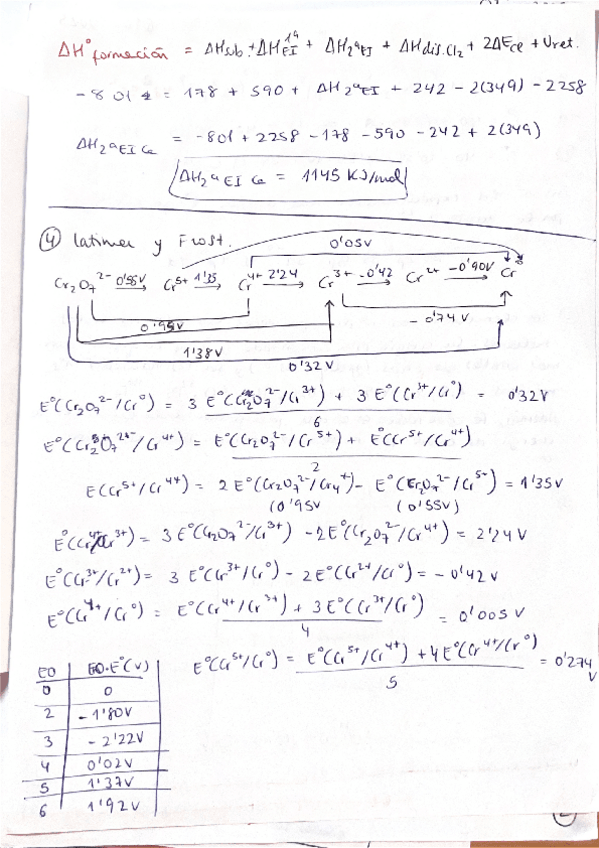 ΔH°formación = ΔHsub. + ΔH1ªEI + ΔH2ªEI + ΔHdis.Cl2 + 2ΔECe + Uret.
- 801 = 178 + 590 + ΔH2ªEI + 242 - 2(349) - 2258
ΔH2ªEI Ca = -801 + 2258 - 178 - 590 - 242 + 2(349)
ΔH2ªEI Ca = 1145 KJ/mol
④ Latimer y Frost.
0'05V
Cr2O7 2- 0'55V Cr5+ 1'35 Cr4+ 2'24 Cr3+ -0'42 Cr2+ -0'90V Cr
0'95V
- 0'74 V
1'38V
0'32V
E°(Cr2O7 2-/Cr°) = 3 E°(Cr2O7 2-/Cr3+) + 3 E°(Cr3+/Cr°) / 6 = 0'32V
E°(Cr2O7 2-/Cr4+) = E°(Cr2O7 2-/Cr5+) + E°(Cr5+/Cr4+) / 2
E(Cr5+/Cr4+) = 2 E°(Cr2O7 2-/Cr4+) - E°(Cr2O7 2-/Cr5+) = 1'35V
(0'95V (0'55V)
E°(Cr4+/Cr3+) = 3 E°(Cr2O7 2-/Cr3+) - 2E°(Cr2O7 2-/Cr4+) = 2'24V
E°(Cr3+/Cr2+) = 3 E°(Cr3+/Cr°) - 2E°(Cr2+/Cr°) = - 0'42V
E°(Cr4+/Cr°) = E°(Cr4+/Cr3+) + 3E°(Cr3+/Cr°) / 4 = 0'005 V
E°(Cr5+/Cr°) = E°(Cr5+/Cr4+) + 4E°(Cr4+/Cr°) / 5 = 0'274 V
EO EO·E°(V)
0 0
2 - 1'80V
3 - 2'22V
4 0'02V
5 1'37V
6 1'92V